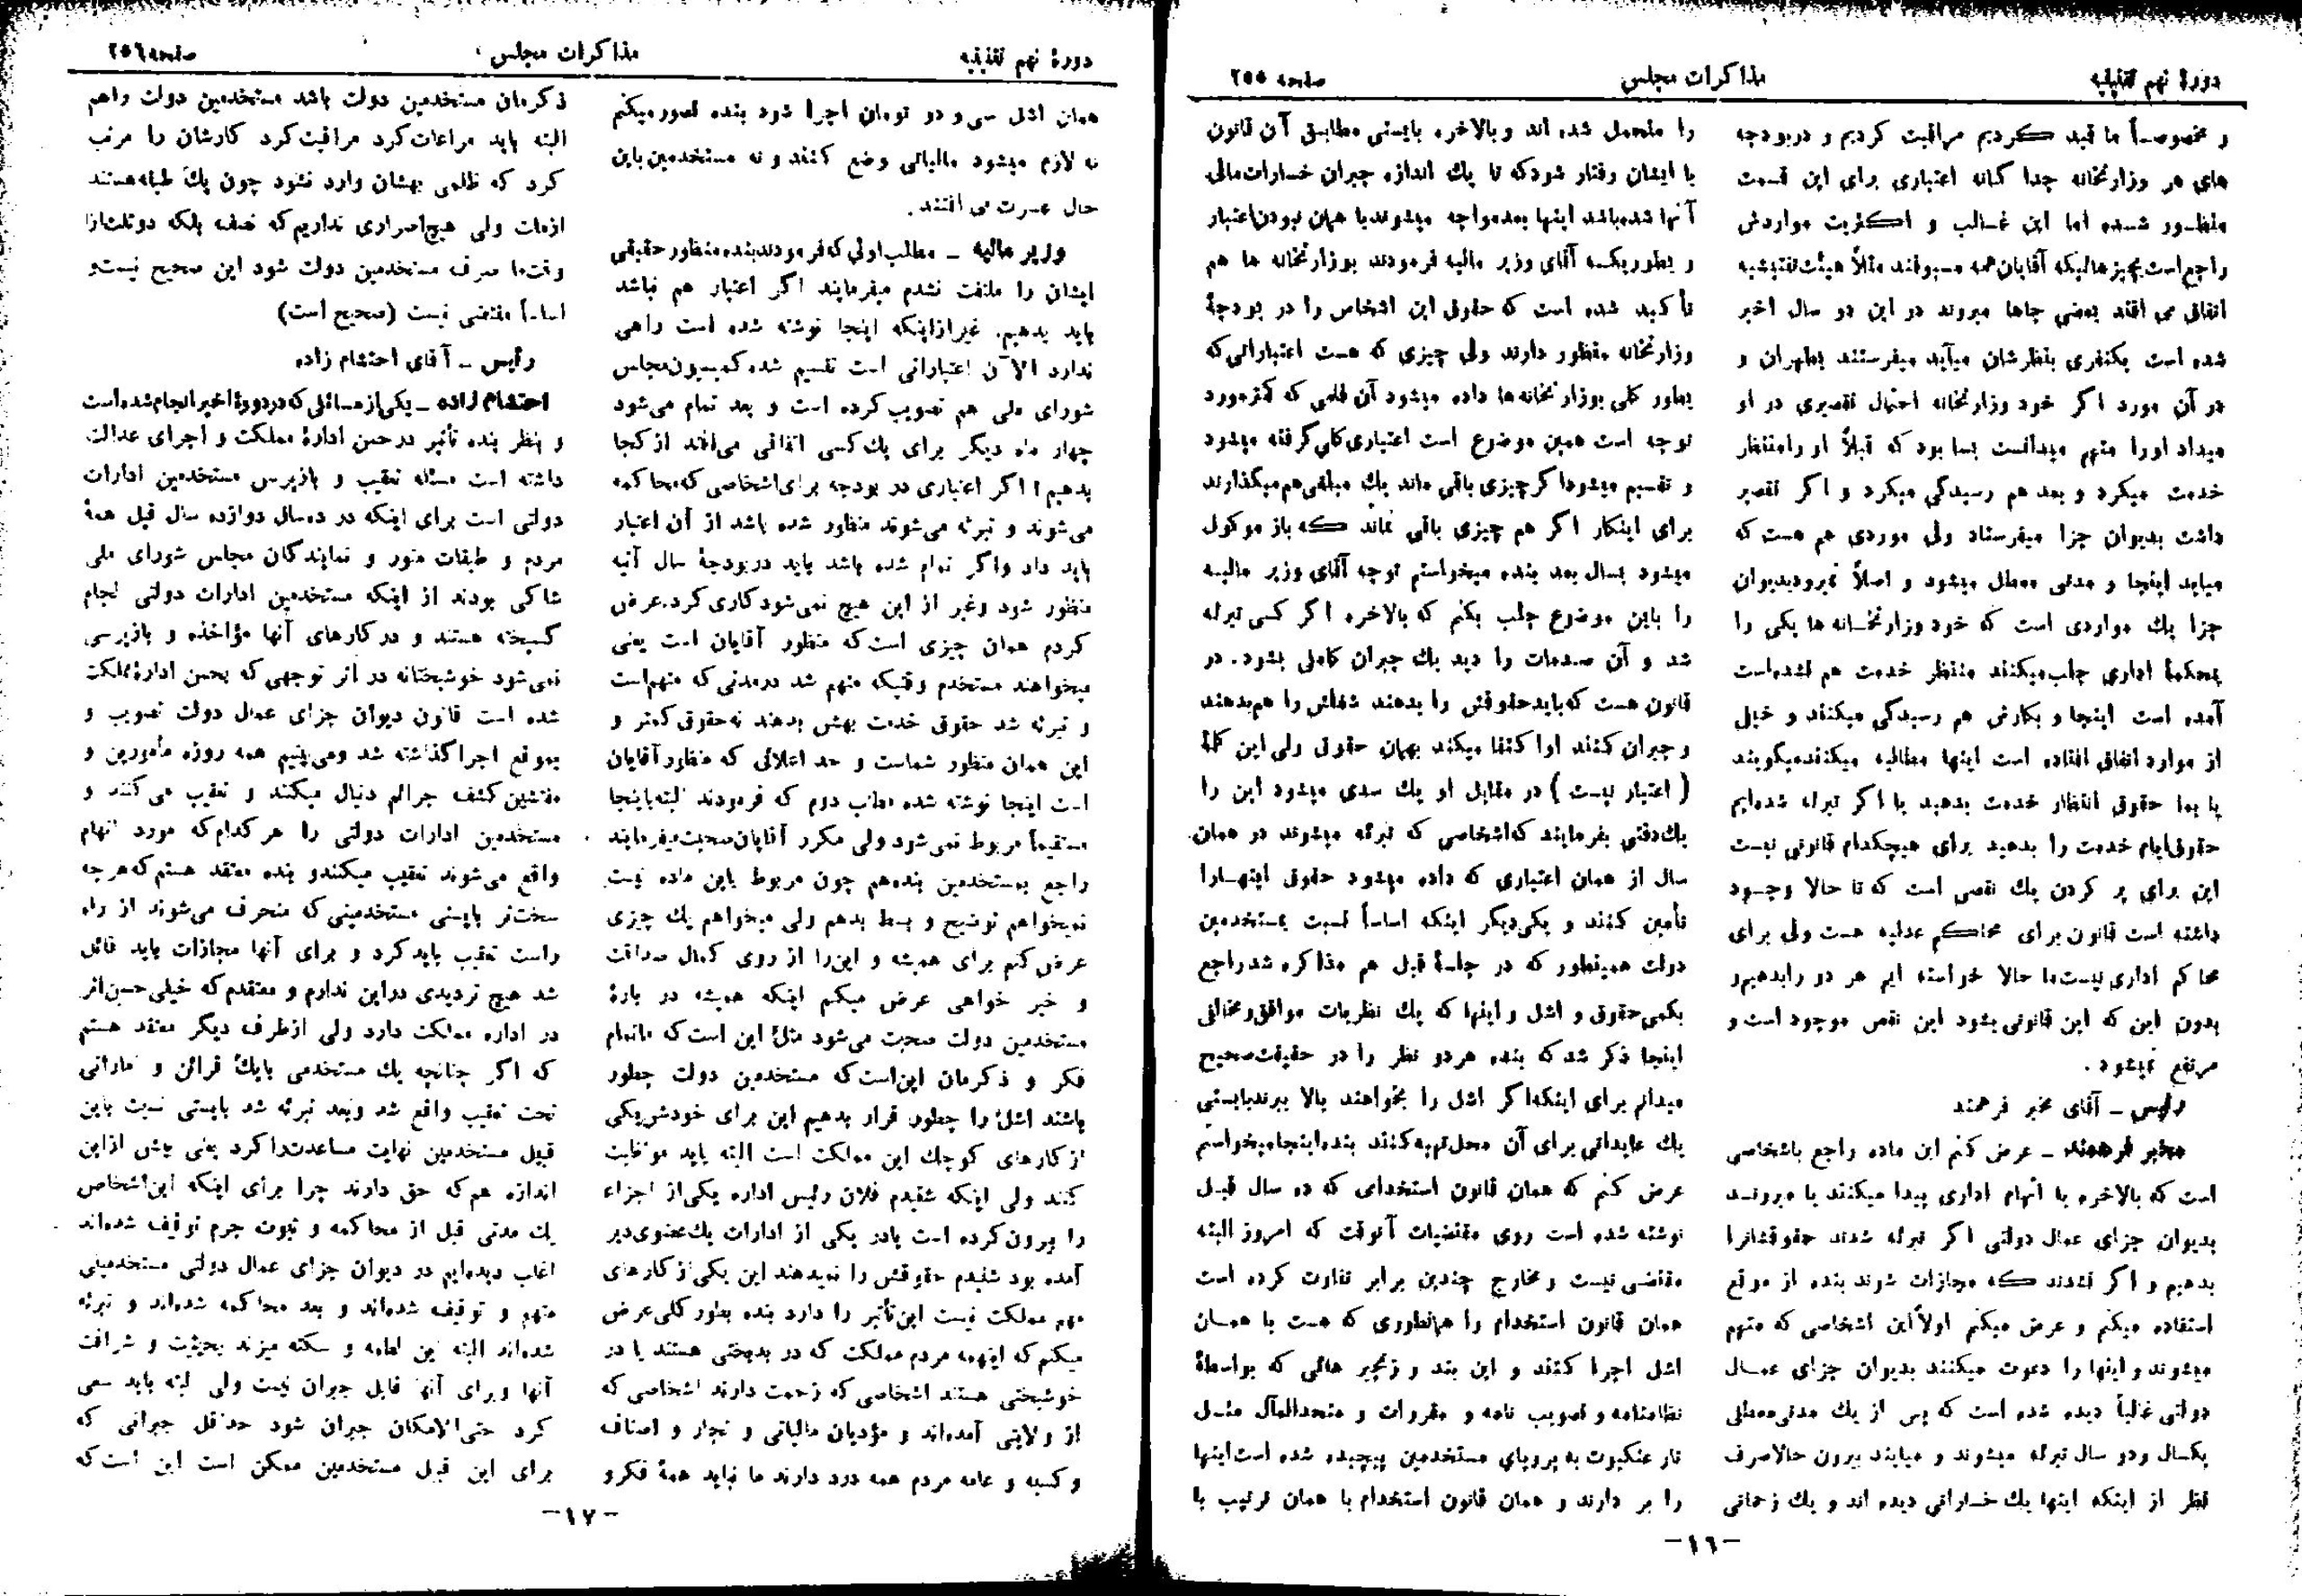 دورهٔ نهم تقنینیه
مذاکرات مجلس
صفحه ۲۵۵
و مخصوصاً ما قید کردیم مراقبت کردیم و دربودجه
های هر وزارتخانه جدا گانه اعتباری برای این قسمت
منظور شده اما این غالب و اکثریت مواردش
راجع است بچیزهائیکه آقایان همه مسبوقند مثلاً هیئت تفتیشیه
اتفاق می افتد بعضی جاها میروند در این دو سال اخیر
شده است یکنفری بنظرشان میآید میفرستند بطهران و
در آن مورد اگر خود وزارتخانه احتمال تقصیری در او
میداد اورا متهم میدانست بسا بود که قبلاً او را منتظر
خدمت میکرد و بعد هم رسیدگی میکرد و اگر تقصیر
داشت بدیوان جزا میفرستاد ولی موردی هم هست که
میاید اینجا و مدتی معطل میشود و اصلاً نمیرود بدیوان
جزا یك مواردی است که خود وزارتخانه ها یکی را
بمحکمهٔ اداری جلب میکنند منتظر خدمت هم نشده است
آمده است اینجا و بکارش هم رسیدگی میکنند و خیلی
از موارد اتفاق افتاده است اینها مطالبه میکنند میگویند
یا بما حقوق انتظار خدمت بدهید یا اگر تبرئه شده‌ایم
حقوق ایام خدمت را بدهید برای هیچکدام قانونی نیست
این برای پر کردن یك نقصی است که تا حالا وجود
داشته است قانون برای محاکم عدلیه هست ولی برای
محاکم اداری نیست ما حالا خواسته ایم هر دو را بدهیم و
بدون این که این قانونی بشود این نقص موجود است و
مرتفع نمیشود.
رئیس ـ آقای مخبر فرهمند
مخبر فرهمند ـ عرض کنم این ماده راجع باشخاصی
است که بالاخره یا اتهام اداری پیدا میکنند یا میروند
بدیوان جزای عمال دولتی اگر تبرئه شدند حقوقشانرا
بدهیم و اگر نشدند که مجازات شوند بنده از موقع
استفاده میکنم و عرض میکنم اولاً این اشخاصی که متهم
میشوند و اینها را دعوت میکنند بدیوان جزای عمال
دولتی غالباً دیده شده است که پس از یك مدتی معطلی
یکسال ودو سال تبرئه میشوند و میایند بیرون حالا صرف
نظر از اینکه اینها یك خساراتی دیده اند و یك زحماتی
را متحمل شده اند و بالاخره بایستی مطابق آن قانون
با ایشان رفتار شود که تا یك اندازه جبران خسارات مالی
آنها شده باشد اینها بعد مواجه میشوند با همان نبودن اعتبار
و بطوریکه آقای وزیر مالیه فرمودند بوزارتخانه ها هم
تأکید شده است که حقوق این اشخاص را در بودجهٔ
وزارتخانه منظور دارند ولی چیزی که هست اعتباراتی که
بطور کلی بوزارتخانه‌ها داده میشود آن قلمی که کمتر مورد
توجه است همین موضوع است اعتباری کلی گرفته میشود
و تقسیم میشود اگر چیزی باقی ماند یك مبلغی هم میگذارند
برای اینکار اگر هم چیزی باقی نماند که باز موکول
میشود بسال بعد بنده میخواستم توجه آقای وزیر مالیه
را باین موضوع جلب بکنم که بالاخره اگر کسی تبرئه
شد و آن صدمات را دید یك جبران کاملی بشود. در
قانون هست که باید حقوقش را بدهند شغلش را هم بدهند
و جبران کنند او اکتفا میکند بهمان حقوق ولی این کلمهٔ
( اعتبار نیست ) در مقابل او یك سدی میشود این را
یك دقتی بفرمایند که اشخاصی که تبرئه میشوند در همان
سال از همان اعتباری که داده میشود حقوق اینها را
تأمین کنند و یکی دیگر اینکه اساساً نسبت بمستخدمین
دولت همینطور که در جلسهٔ قبل هم مذاکره شد راجع
بکمی حقوق و اشل و اینها که یك نظریات موافق و مخالفی
اینجا ذکر شد که بنده هر دو نظر را در حقیقت صحیح
میدانم برای اینکه اگر اشل را بخواهند بالا ببرند بایستی
یك عایداتی برای آن محل تهیه کنند بنده اینجا میخواستم
عرض کنم که همان قانون استخدامی که ده سال قبل
نوشته شده است روی مقتضیات آنوقت که امروز البته
مقتضی نیست و مخارج چندین برابر تفاوت کرده است
همان قانون استخدام را همانطوری که هست با همان
اشل اجرا کنند و این بند و زنجیر هائی که بواسطهٔ
نظامنامه و تصویب نامه و مقررات و متحدالمآل مثل
تار عنکبوت به پروپای مستخدمین پیچیده شده است اینها
را بر دارند و همان قانون استخدام با همان ترتیب با
ـ۱٦ـ
دورهٔ نهم تقنینیه
مذاکرات مجلس
صفحه ۲۵٦
همان اشل سی و دو تومان اجرا شود بنده تصور میکنم
نه لازم میشود مالیاتی وضع کنند و نه مستخدمین باین
حال عسرت می افتند.
وزیر مالیه ـ مطلب اولی که فرمودند بنده منظور حقیقی
ایشان را ملتفت نشدم میفرمایند اگر اعتبار هم نباشد
باید بدهیم. غیر از اینکه اینجا نوشته شده است راهی
ندارد الآن اعتباراتی است تقسیم شده کمیسیون مجلس
شورای ملی هم تصویب کرده است و بعد تمام می‌شود
چهار ماه دیگر برای یك کسی اتفاقی می‌افتد از کجا
بدهیم؟ اگر اعتباری در بودجه برای اشخاصی که محاکمه
می‌شوند و تبرئه می‌شوند منظور شده باشد از آن اعتبار
باید داد واگر تمام شده باشد باید دربودجهٔ سال آتیه
منظور شود وغیر از این هیچ نمی‌شود کاری کرد. عرض
کردم همان چیزی است که منظور آقایان است یعنی
میخواهند مستخدم وقتیکه متهم شد در مدتی که متهم است
و تبرئه شد حقوق خدمت بهش بدهند نه حقوق کمتر و
این همان منظور شماست و حد اعلائی که منظور آقایان
است اینجا نوشته شده مطلب دوم که فرمودند البته باینجا
مستقیماً مربوط نمی‌شود ولی مکرر آقایان صحبت میفرمایند
راجع بمستخدمین بنده هم چون مربوط باین ماده نیست
نمیخواهم توضیح و بسط بدهم ولی میخواهم یك چیزی
عرض کنم برای همیشه و این را از روی کمال صداقت
و خیر خواهی عرض میکنم اینکه همیشه در بارهٔ
مستخدمین دولت صحبت می‌شود مثل این است که ما تمام
فکر و ذکرمان این‌است که مستخدمین دولت چطور
باشند اشل را چطور قرار بدهیم این برای خودش یکی
از کارهای کوچك این مملکت است البته باید موظبت
کنند ولی اینکه شنیدم فلان رئیس اداره یکی از اجزاء
را بیرون کرده است یا در یکی از ادارات یك عضوی دیر
آمده بود شنیدم حقوقش را نمیدهند این یکی از کارهای
مهم مملکت نیست این تأثیر را دارد بنده بطور کلی عرض
میکنم که اینهمه مردم مملکت که در بدبختی هستند یا در
خوشبختی هستند اشخاصی که زحمت دارند اشخاصی که
از ولایتی آمده‌اند و مؤدیان مالیاتی و تجار و اصناف
و کسبه و عامه مردم همه درد دارند ما نباید همهٔ فکر و
ذکرمان مستخدمین دولت باشد مستخدمین دولت را هم
البته باید مراعات کرد مراقبت کرد کارشان را مرتب
کرد که ظلمی بهشان وارد نشود چون یك طبقه هستند
از ملت ولی هیچ اصراری نداریم که نصف بلکه دو ثلث از
وقت ما صرف مستخدمین دولت شود این صحیح نیست و
اساساً مقتضی نیست (صحیح است)
رئیس ـ آقای احتشام زاده
احتشام زاده ـ یکی از مسائلی که در دورهٔ اخیر انجام شده است
و بنظر بنده تأثیر در حسن ادارهٔ مملکت و اجرای عدالت
داشته است مسئله تعقیب و بازپرس مستخدمین ادارات
دولتی است برای اینکه در ده سال دوازده سال قبل همهٔ
مردم و طبقات منور و نمایندگان مجلس شورای ملی
شاکی بودند از اینکه مستخدمین ادارات دولتی لجام
گسیخته هستند و در کارهای آنها مؤاخذه و بازپرسی
نمی‌شود خوشبختانه در اثر توجهی که بحسن ادارهٔ مملکت
شده است قانون دیوان جزای عمال دولت تصویب و
بموقع اجرا گذاشته شد ومی‌بینیم همه روزه مأمورین و
مفتشین کشف جرائم دنبال میکنند و تعقیب می کنند و
مستخدمین ادارات دولتی را هر کدام که مورد اتهام
واقع می‌شوند تعقیب میکنند و بنده معتقد هستم که هرچه
سخت‌تر بایستی مستخدمینی که منحرف می‌شوند از راه
راست تعقیب باید کرد و برای آنها مجازات باید قائل
شد هیچ تردیدی در این ندارم و معتقدم که خیلی حسن اثر
در اداره مملکت دارد ولی از طرف دیگر معتقد هستم
که اگر چنانچه یك مستخدمی با یك قرائن و اماراتی
تحت تعقیب واقع شد وبعد تبرئه شد بایستی نسبت باین
قبیل مستخدمین نهایت مساعدت را کرد یعنی بیش از این
اندازه هم که حق دارند چرا برای اینکه این اشخاص
یك مدتی قبل از محاکمه و ثبوت جرم توقیف شده‌اند
اغلب دیده‌ایم در دیوان جزای عمال دولتی مستخدمینی
متهم و توقیف شده‌اند و بعد محاکمه شده‌اند و تبرئه
شده‌اند البته این لطمه و سکته میزند بحیثیت و شرافت
آنها وبرای آنها قابل جبران نیست ولی البته باید سعی
کرد حتی‌الامکان جبران شود حداقل جبرانی که
برای این قبیل مستخدمین ممکن است این است که
ـ۱۷ـ